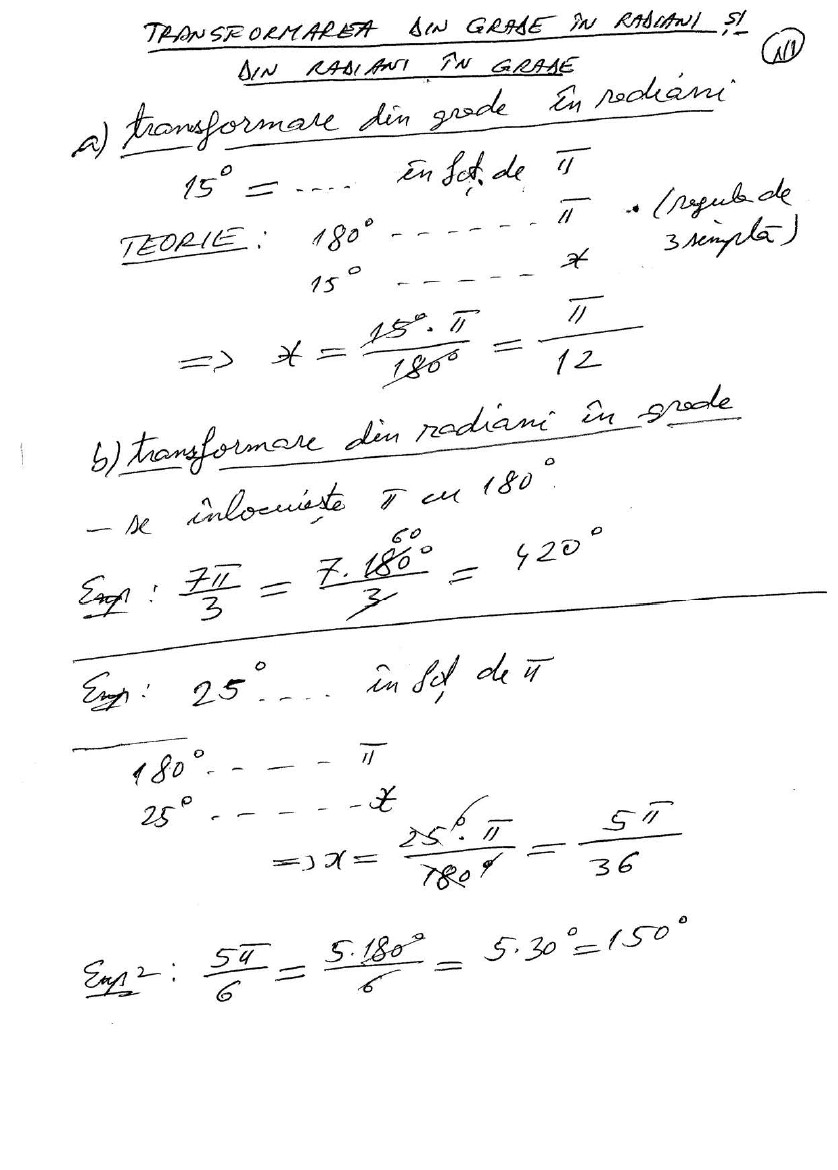 TRANSFORMAREA DIN GRADE ÎN RADIANI ȘI
DIN RADIANI ÎN GRADE
a) transformare din grade în radiani
15° = .... în fcț. de π
TEORIE: 180° ------ π • (regula de
3 simplă)
15° ------ x
=> x = 15°·π/180° = π/12
b) transformare din radiani în grade
– se înlocuiește π cu 180°.
Exp: 7π/3 = 7·180°/3 = 420°
60
Exp: 25° .... în fcț de π
180° ----- π
25° ------ x
=> x = 25°·π/180° = 5π/36
Exp 2: 5π/6 = 5·180°/6 = 5·30° = 150°